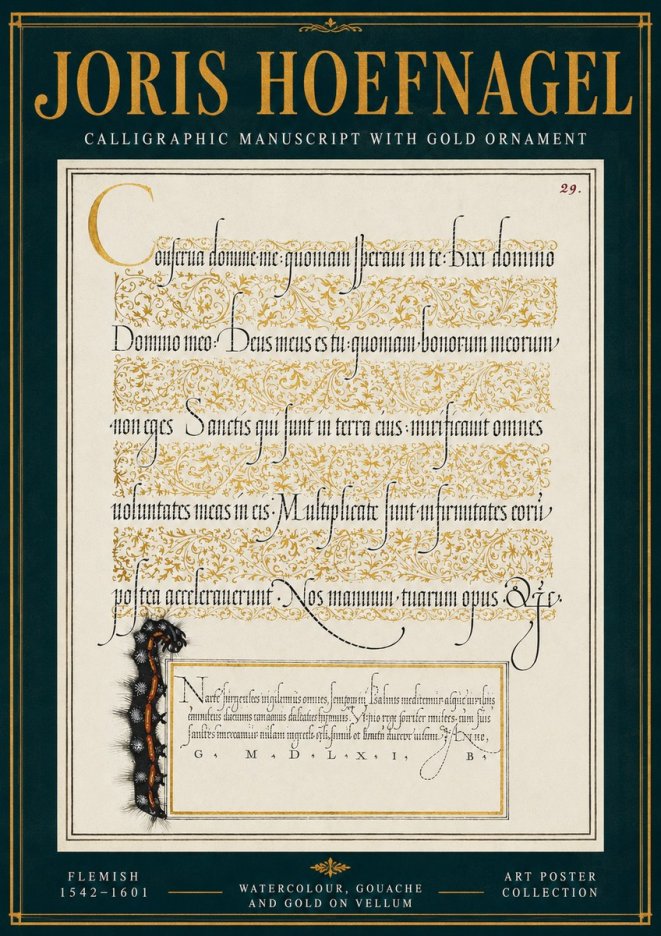 JORIS HOEFNAGEL
CALLIGRAPHIC MANUSCRIPT WITH GOLD ORNAMENT
29.
Conserua domine me: quoniam speraui in te: Dixi domino
Domino meo: Deus meus es tu: quoniam bonorum meorum
non eges Sanctis qui sunt in terra eius: mirificauit omnes
uoluntates meas in eis. Multiplicate sunt infirmitates eorū
postea accelerauerunt. Nos manuum tuarum opus.
surgentes uigilemus omnes, semper in Psalmis meditemur atque uiribus
G, M, D, L, X, I, B,
FLEMISH
1542–1601
WATERCOLOUR, GOUACHE
AND GOLD ON VELLUM
ART POSTER
COLLECTION